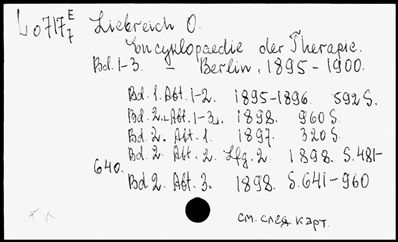 Lo717 E/7 Liebreich O.
Encyklopaedie der Therapie.
Bd. 1-3. - Berlin, 1895-1900.
Bd. 1. Abt. 1-2. 1895-1896. 592 S.
Bd. 2. Abt. 1-3. 1898. 960 S.
Bd. 2. Abt. 1. 1897. 320 S.
Bd. 2. Abt. 2. Lfg. 2 1898. S. 481-
640.
Bd 2. Abt. 3. 1898. S. 641-960
см. след. карт.